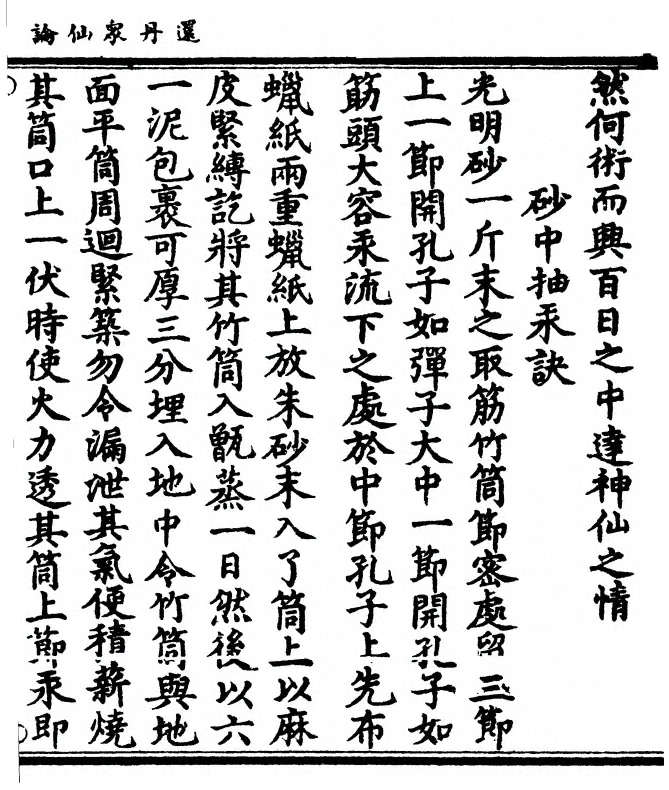 還丹眾仙論
然何術而興百日之中達神仙之情
砂中抽汞訣
光明砂一斤末之取筋竹筒節密處留三節
上一節開孔子如彈子大中一節開孔子如
筋頭大容汞流下之處於中節孔子上先布
蠟紙兩重蠟紙上放朱砂末入了筒上以麻
皮緊縛訖將其竹筒入甑蒸一日然後以六
一泥包裹可厚三分埋入地中令竹筒與地
面平筒周迴緊築勿令漏泄其氣便積薪燒
其筒口上一伏時使火力透其筒上節汞即